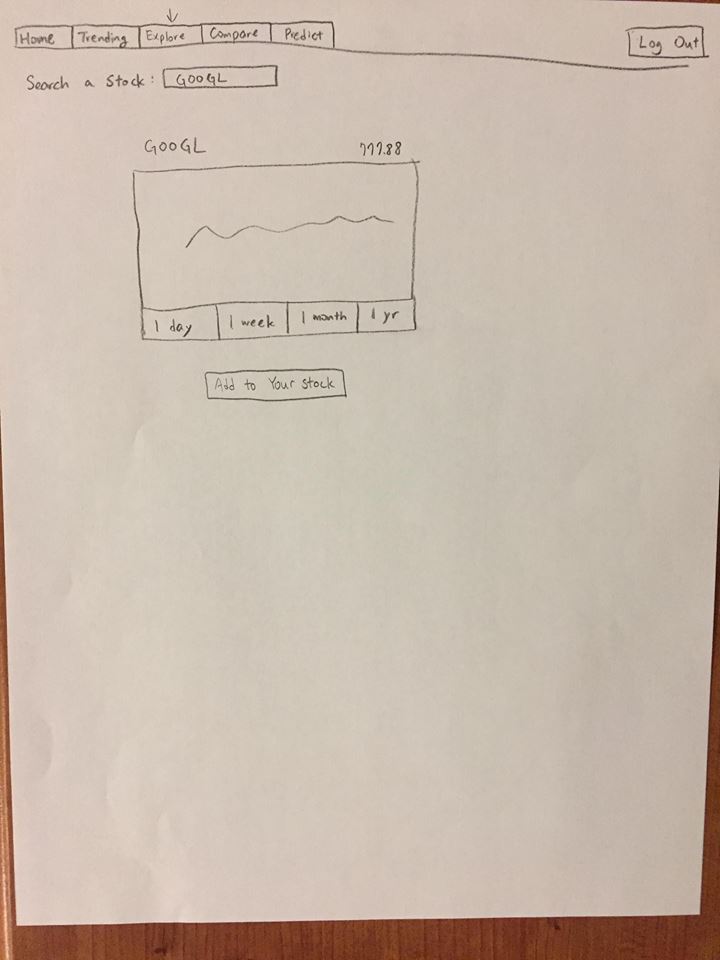 Home Trending Explore Compare Predict Log Out
Search a stock: GOOGL
GOOGL 777.88
1 day 1 week 1 month 1 yr
Add to Your stock